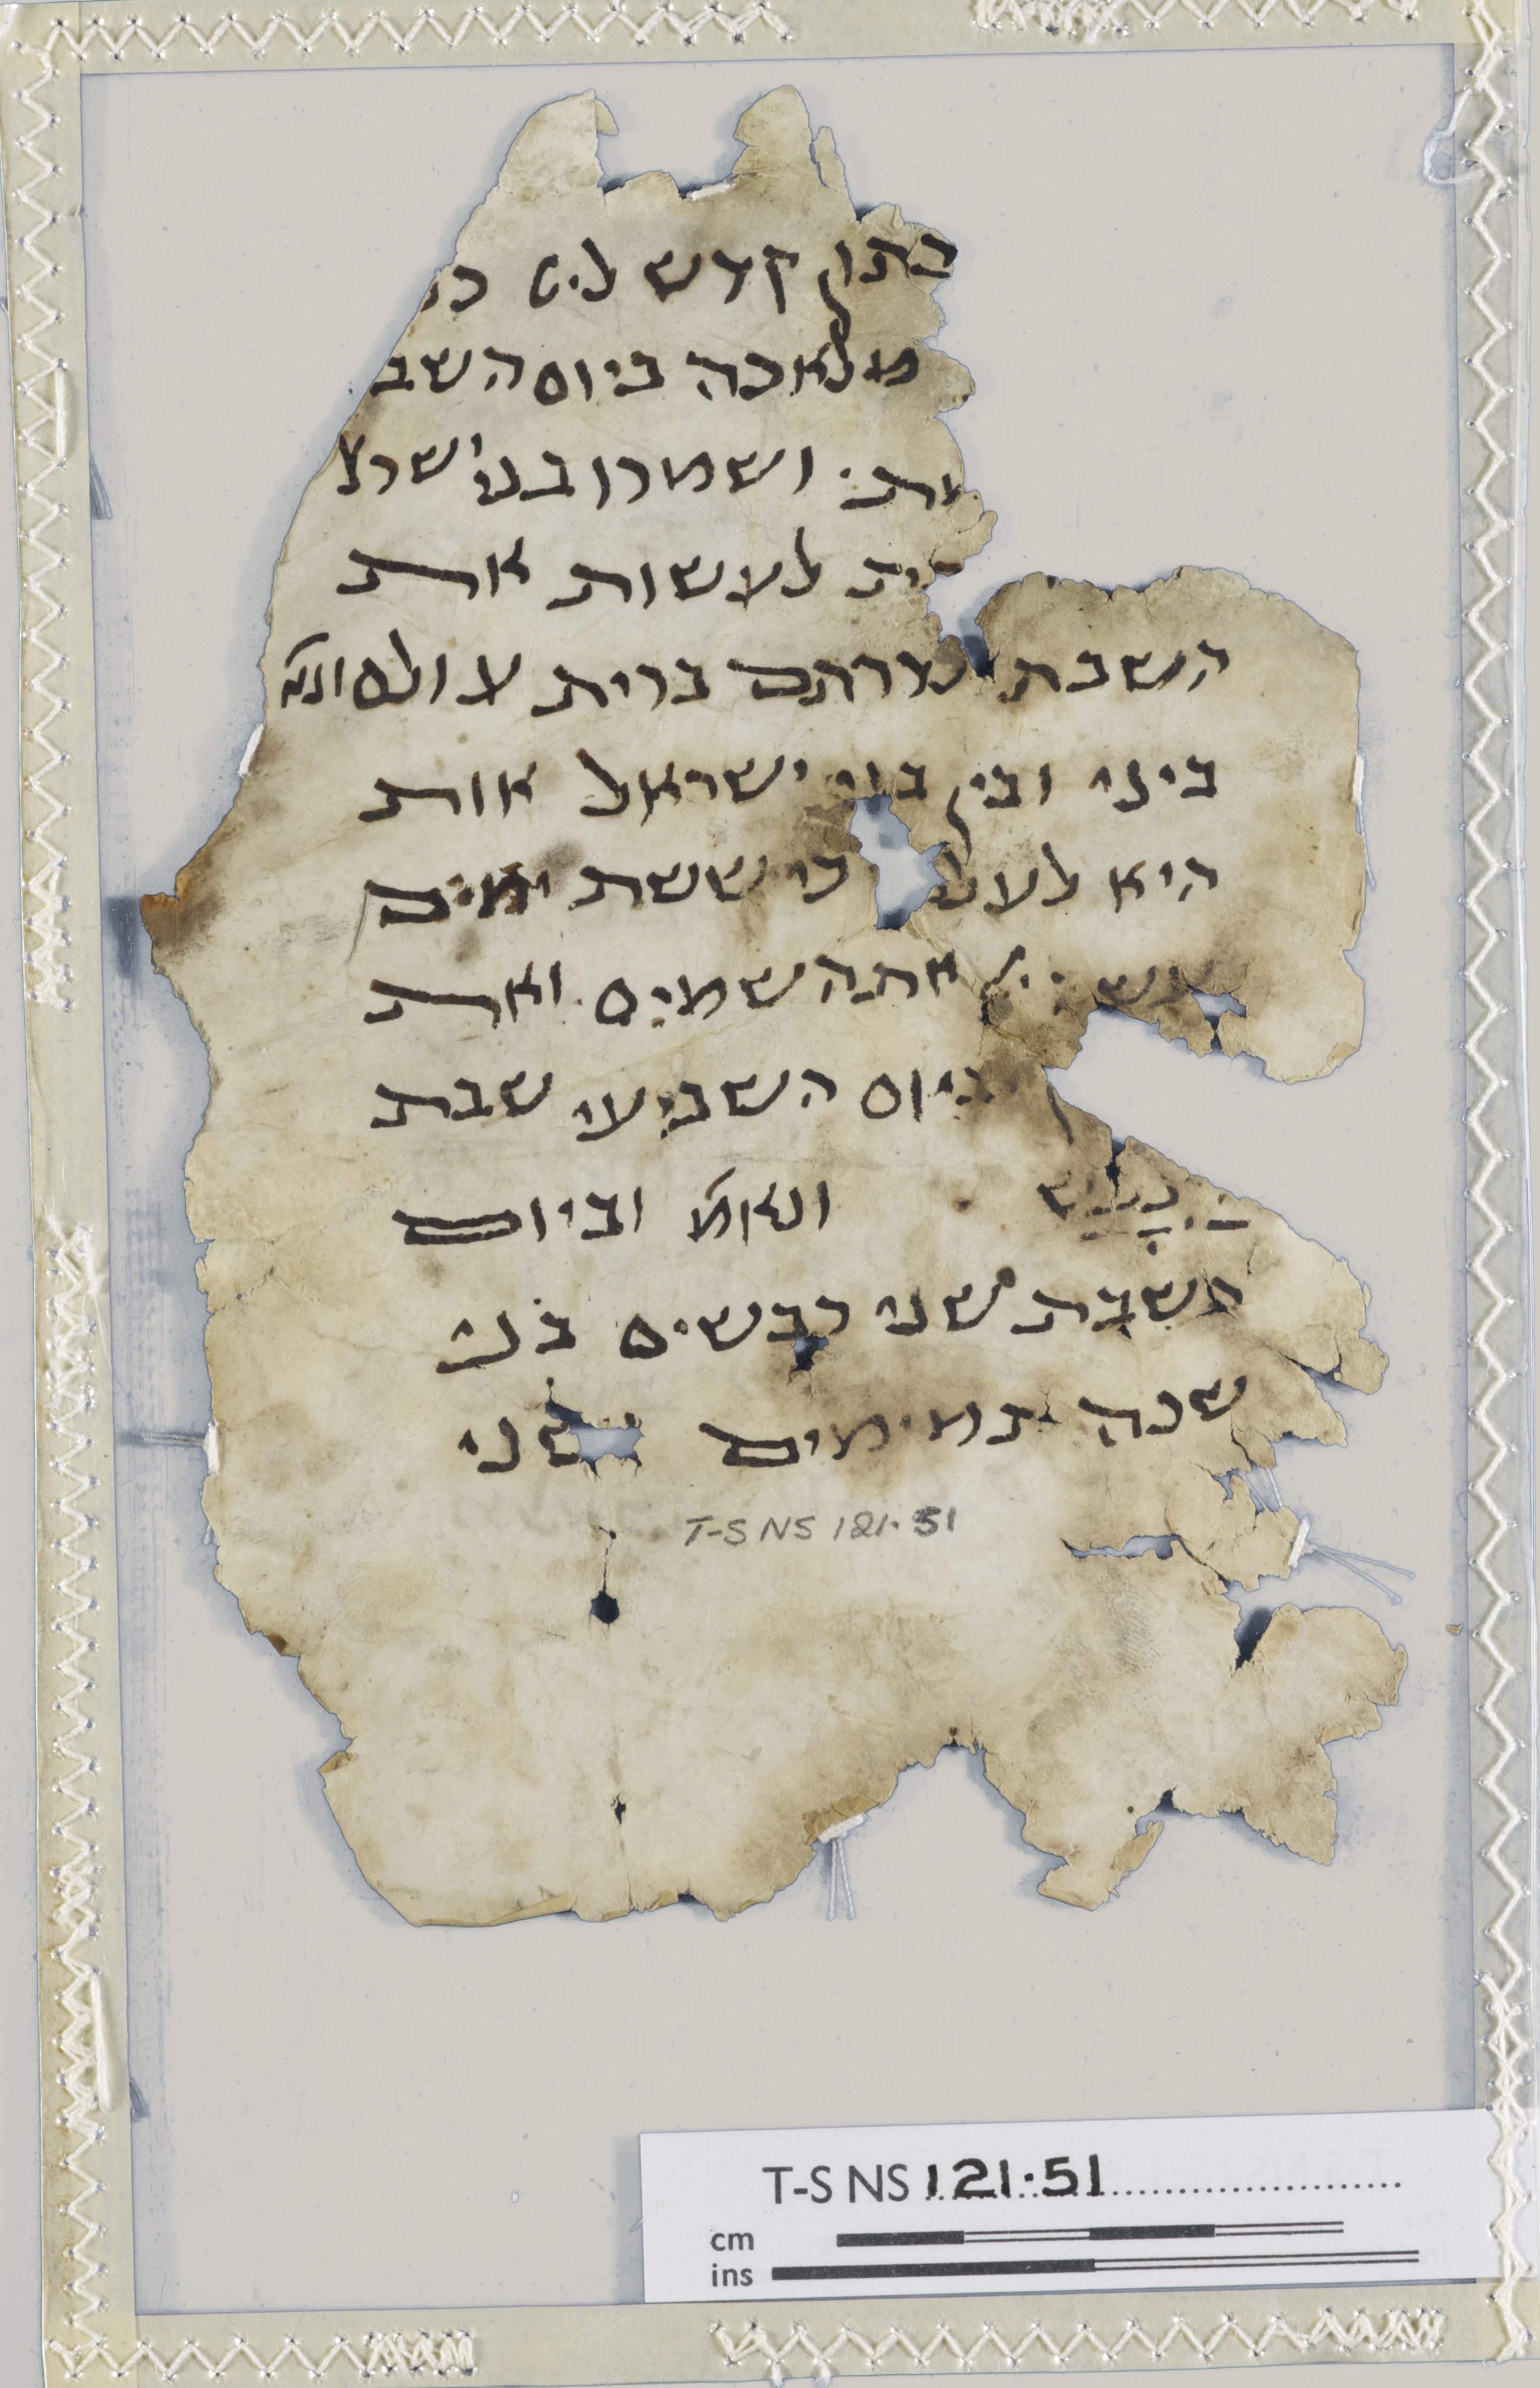 בתון קדש ליי
מלאכה ביום השב
ושמרו בני ישר
לעשות את
השבת לדרתם ברית עולם
ביני ובין בני ישראל אות
היא לעל כי ששת ימים
את השמים ואת
ביום השביעי שבת
וינפש ונאמ וביום
השבת שני כבשים בני
שנה תמימים שני
T-S NS 121.51
T-S NS 121.51
cm
ins